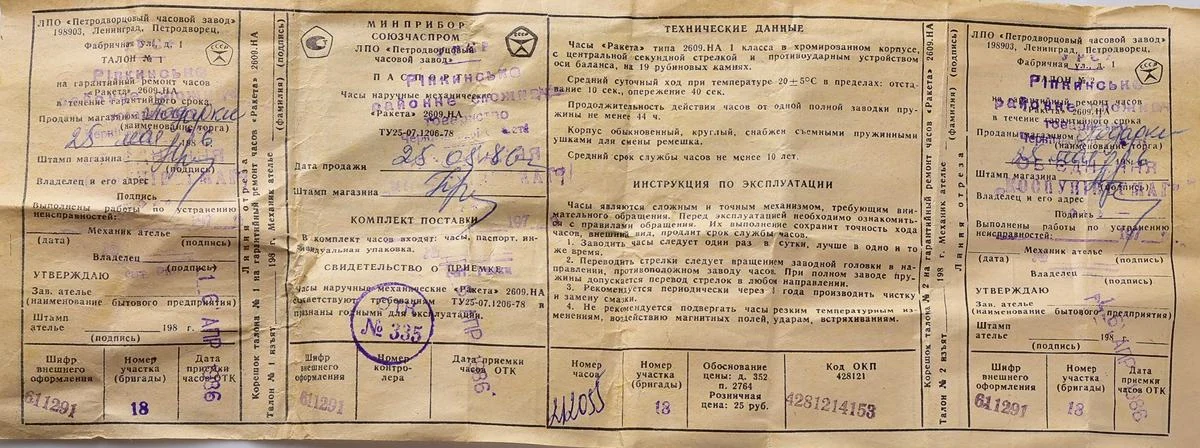 ЛПО «Петродворцовый часовой завод»
198903, Ленинград, Петродворец,
Фабричная ул., д. 1
ТАЛОН № 1
на гарантийный ремонт часов
«Ракета» 2609.НА
в течение гарантийного срока
Проданы магазином Подарки
(наименование торга)
Штамп магазина
(подпись)
Владелец и его адрес
Подпись
Выполнены работы по устранению
неисправностей:
Механик ателье
(дата) (подпись)
Владелец
(подпись)
УТВЕРЖДАЮ
Зав. ателье
(наименование бытового предприятия)
Штамп
ателье 198 г.
(подпись)
Шифр внешнего оформления
Номер участка (бригады)
Дата приемки часов ОТК
611291
18
АПР 1986
Линия отреза
Корешок талона № 1 на гарантийный ремонт часов «Ракета» 2609.НА
Талон № 1 изъят 198 г. Механик ателье (фамилия) (подпись)
МИНПРИБОР
СОЮЗЧАСПРОМ
ЛПО «Петродворцовый
часовой завод»
ПАСПОРТ
Рiпкинське
районне
Часы наручные механические
«Ракета» 2609.НА
ТУ25-07.1206-78
Дата продажи
Штамп магазина
КОМПЛЕКТ ПОСТАВКИ
В комплект часов входят: часы, паспорт, ин-
дивидуальная упаковка.
СВИДЕТЕЛЬСТВО О ПРИЕМКЕ
Часы наручные механические «Ракета» 2609.НА
соответствуют требованиям ТУ25-07.1206-78 и
признаны годными для эксплуатации.
№ 335
Шифр внешнего оформления
Номер контро-
лера
Дата приемки часов ОТК
611291
АПР 1986
ТЕХНИЧЕСКИЕ ДАННЫЕ
Часы «Ракета» типа 2609.НА I класса в хромированном корпусе,
с центральной секундной стрелкой и противоударным устройством
оси баланса, на 19 рубиновых камнях.
Средний суточный ход при температуре 20±5°С в пределах: отста-
вание 10 сек., опережение 40 сек.
Продолжительность действия часов от одной полной заводки пру-
жины не менее 44 ч.
Корпус обыкновенный, круглый, снабжен съемными пружинными
ушками для смены ремешка.
Средний срок службы часов не менее 10 лет.
ИНСТРУКЦИЯ ПО ЭКСПЛУАТАЦИИ
Часы являются сложным и точным механизмом, требующим вни-
мательного обращения. Перед эксплуатацией необходимо ознакомить-
ся с правилами обращения. Их выполнение сохранит точность хода
часов, внешний вид, продлит срок службы часов.
1. Заводить часы следует один раз в сутки, лучше в одно и то
же время.
2. Переводить стрелки следует вращением заводной головки в на-
правлении, противоположном заводу часов. При полном заводе пру-
жины допускается перевод стрелок в любом направлении.
3. Рекомендуется периодически через 3 года производить чистку
и замену смазки.
4. Не рекомендуется подвергать часы резким температурным из-
менениям, воздействию магнитных полей, ударам, встряхиваниям.
Номер часов
Номер участка (бригады)
18
Обоснование
цены: д. 352
п. 2764
Розничная
цена: 25 руб.
Код ОКП
428121
4281214153
Корешок талона № 2 на гарантийный ремонт часов «Ракета» 2609.НА
Талон № 2 изъят 198 г. Механик ателье (фамилия) (подпись)
Линия отреза
ЛПО «Петродворцовый часовой завод»
198903, Ленинград, Петродворец,
Фабричная ул., д. 1
ТАЛОН № 2
на гарантийный ремонт часов
«Ракета» 2609.НА
в течение гарантийного срока
Проданы магазином Подарки
(наименование торга)
Штамп магазина
(подпись)
Владелец и его адрес
Подпись
Выполнены работы по устранению
неисправностей:
Механик ателье
(дата) (подпись)
Владелец
УТВЕРЖДАЮ
Зав. ателье
(наименование бытового предприятия)
Штамп
ателье 198
(подпись)
Шифр внешнего оформления
Номер участка (бригады)
Дата приемки часов ОТК
611291
18